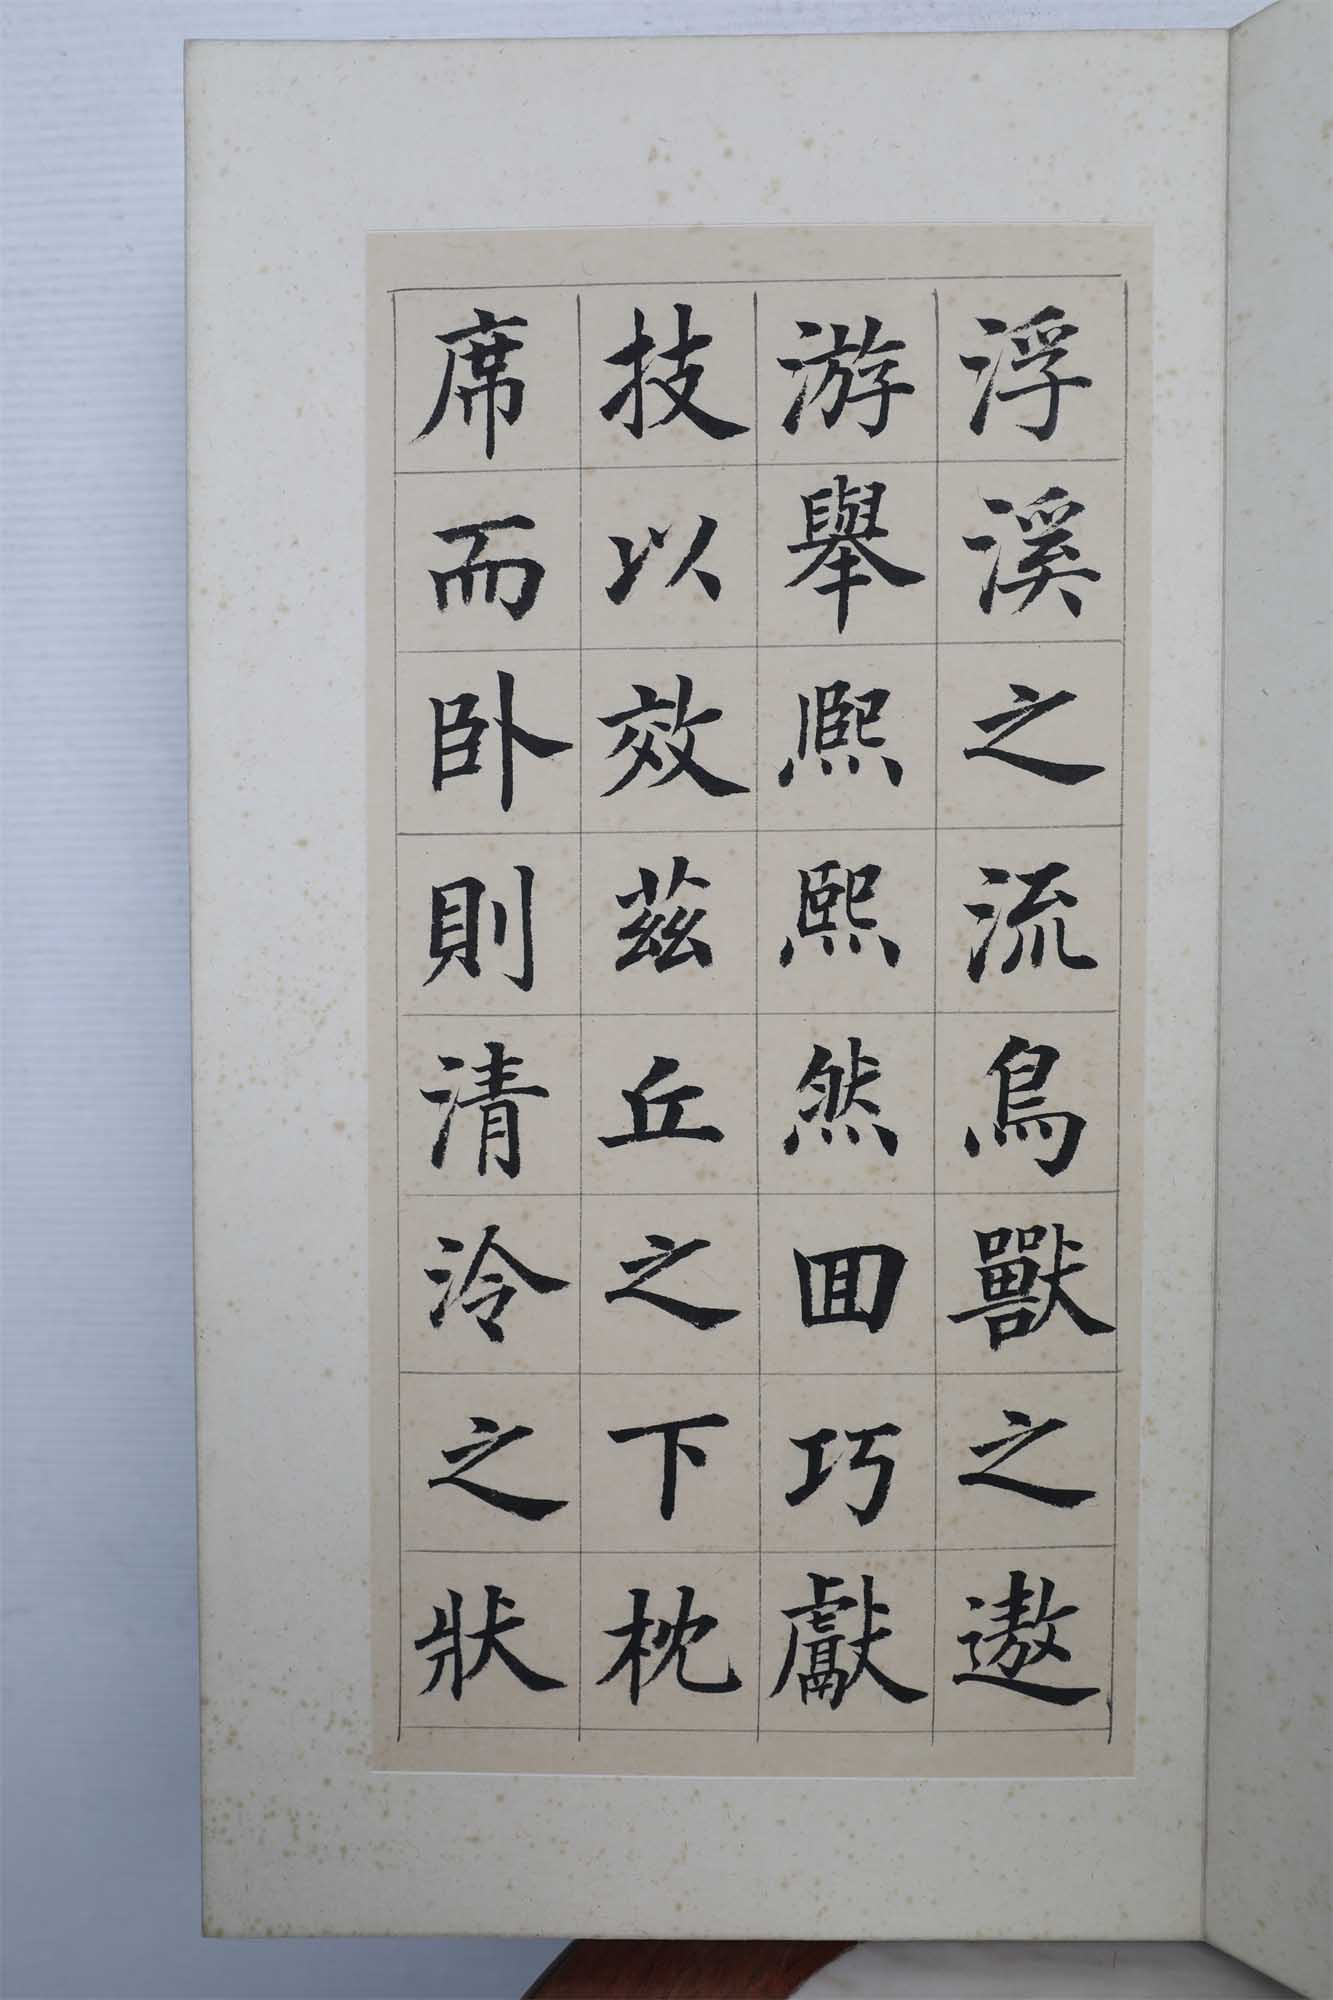 浮溪之流鳥獸之遨
游舉熈熈然囬巧獻
技以效茲丘之下枕
席而卧則清泠之狀